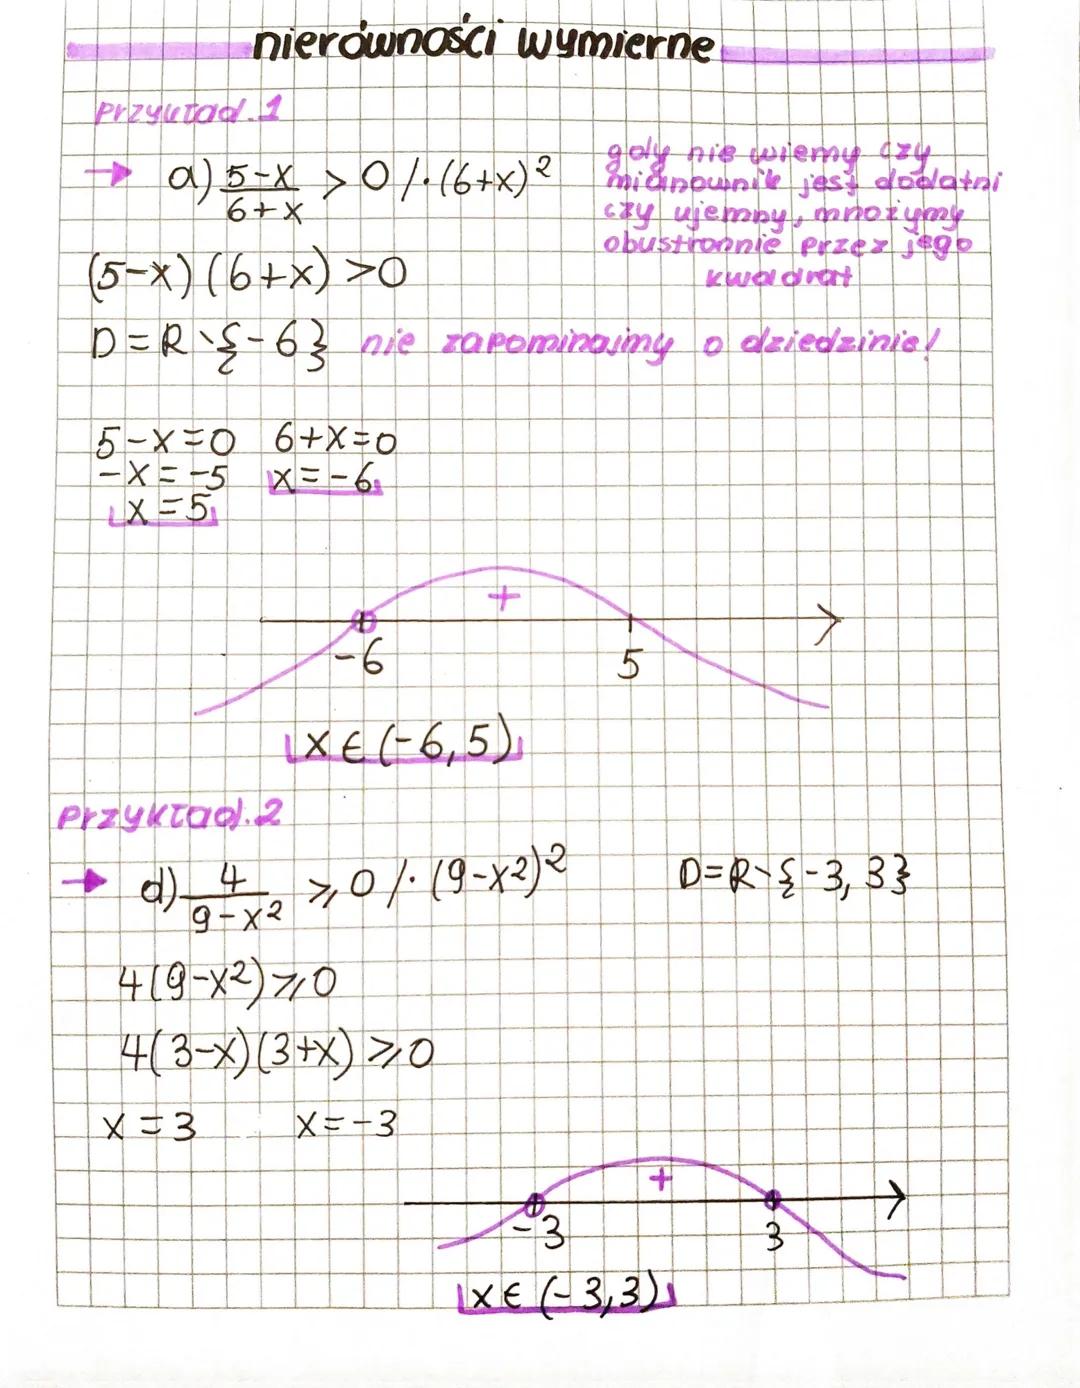 nierówności wymierne
Przykład.1
→ a) \frac{5-x}{6+x} > 0 /·(6+x)²
gdy nie wiemy czy
mianownik jest dodatni
czy ujemny, mnożymy
obustronnie przez jego
kwadrat
(5-x)(6+x)>0
D=R\{-6} nie zapominajmy o dziedzinie!
5-x=0 6+x=0
-x=-5 x=-6
x=5
+
-6 5
x∈(-6,5)
Przykład.2
→ d) \frac{4}{9-x²} ⩾ 0 /·(9-x²)² D=R\{-3, 3}
4(9-x²)⩾0
4(3-x)(3+x)⩾0
x=3 x=-3
+
-3 3
x∈(-3,3)